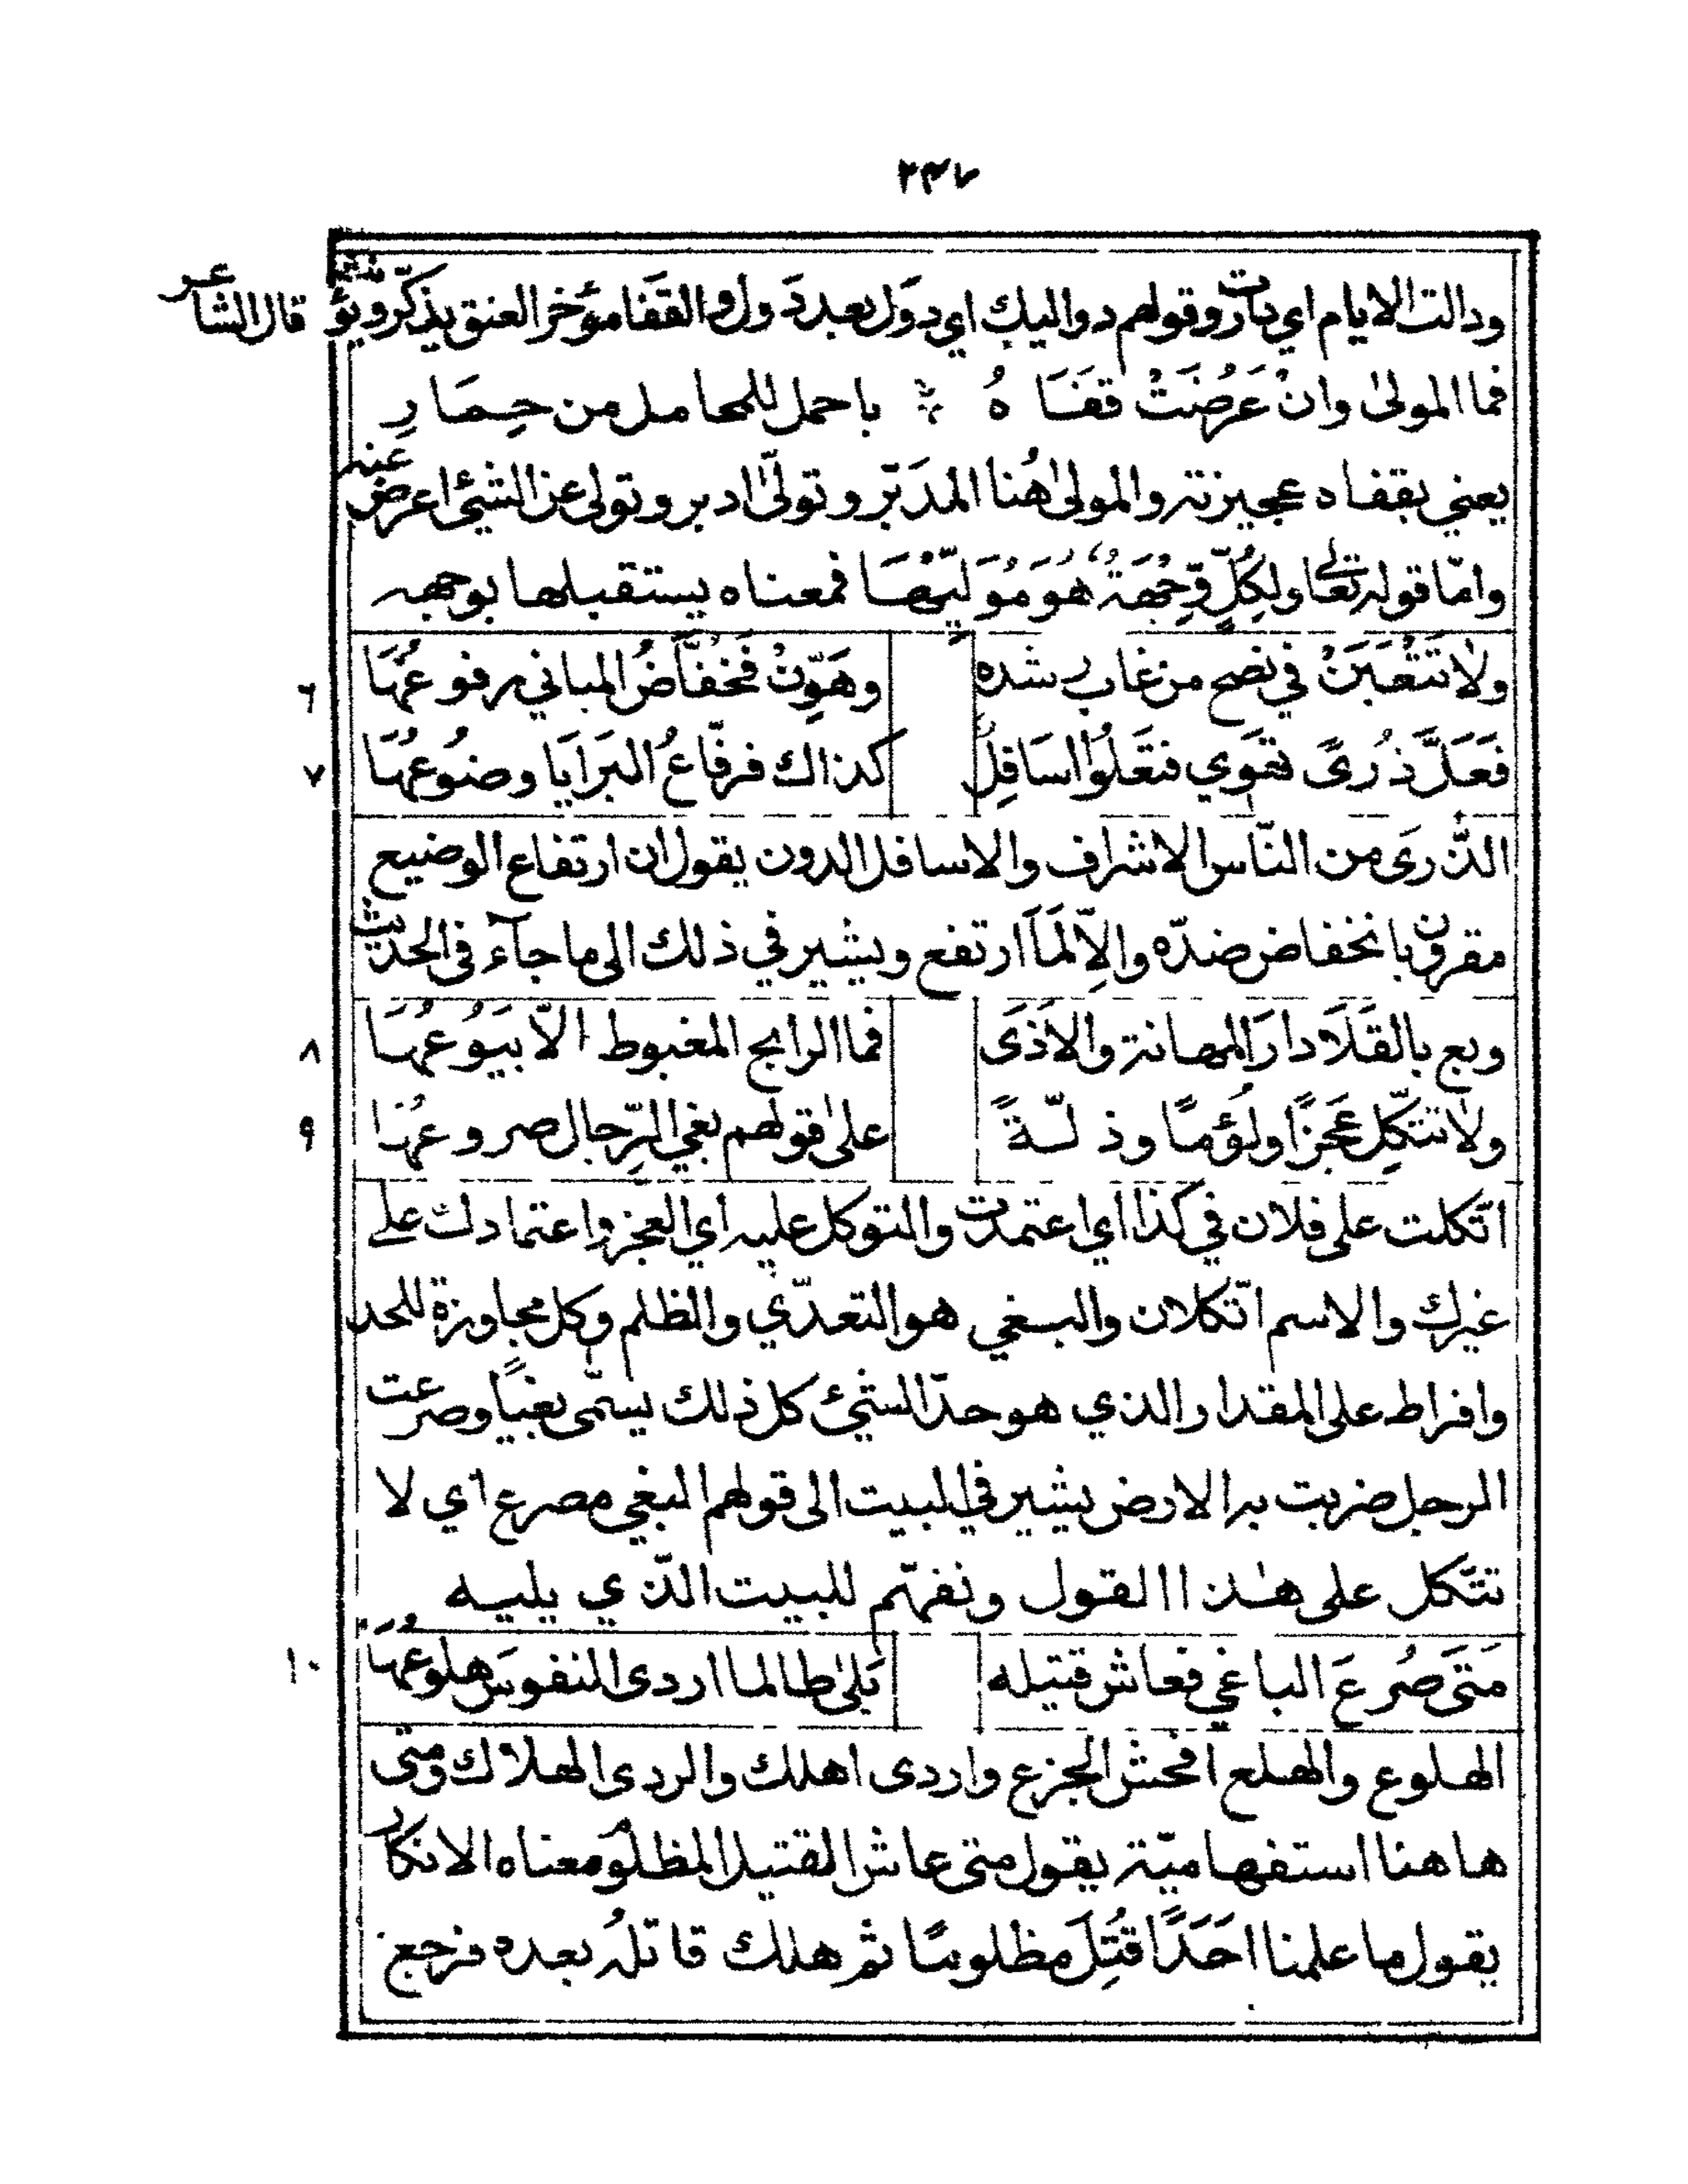 ٢٤٧
ودالت الايام اي دارت وقولهم دواليك اي دول بعد دَول والقَفَا مؤخر العنق يذكّر ويؤنث قال الشاعر
فما المولىٰ وانْ عَرُضَتْ قَفَاهُ باحمل للمحامل من حِمَارِ
يعني بقفاه عجيزته والمولىٰ هُنا المدَبّر وتولّىٰ ادبر وتولى عن الشيئ اعرض عنه
وامّا قوله تعالى ولِكُلٍّ وِّجْهَةٌ هُوَ مُوَلِّيْهَا فمعناه يستقبلها بوجهه
ولا تَتْعَبَنَّ في نصح من غاب رشده وهَوِّنْ فَخفّاضُ المباني رفوعُهَا ٦
فَعَلَّ ذُرىً تهوي فتَعْلُوْ اسَافِلٌ كذاك فرفّاعُ البَرَايَا وضُوعُهَا ٧
الذّرىَ من النّاس الاشراف والاسافل الدون يقول ان ارتفاع الوضيع
مقرون بانخفاض ضدّه والِاّ لَمَا ارتفع ويشير في ذلك الى ما جآء في الحديث
وبع بالقَلَا دارَ المهانة والاَذَى فما الرابح المغبوط الّا بَيُوعُهَا ٨
ولا تتكِّل عَجزًا ولُؤمًا وذلّةً علىٰ قولهم بغي الرّجال صروعُهَا ٩
اتّكلت على فلان في كذا اي اعتمدت والتوكل عليه اي العجز واعتمادك على
غيرك والاسم اتّكلان والبغي هو التعدّي والظلم وكل مجاوزة للحد
وافراط على المقدار الذي هو حدّ الشيئ كل ذلك يسمّى بغيًا وصرعت
الرجل ضربت به الارض يشير في البيت الى قولهم البغي مصرع اي لا
تتّكل على هٰذا القول ونفهّم للبيت الذّي يليه
مَتَى صُرعَ الباغي فعاش قتيله بَلىٰ طالما اردى النفوسَ هلوعُهَا ١٠
الهلوع والهلع افحش الجزع واردى اهلك والردى الهلاك ومتى
هاهنا استفهاميّة يقول متى عاش القتيل المظلوم معناه الانكار
يقول ما علمنا احَدًا قُتِلَ مظلومًا ثم هلك قاتلُه بعده فرجع